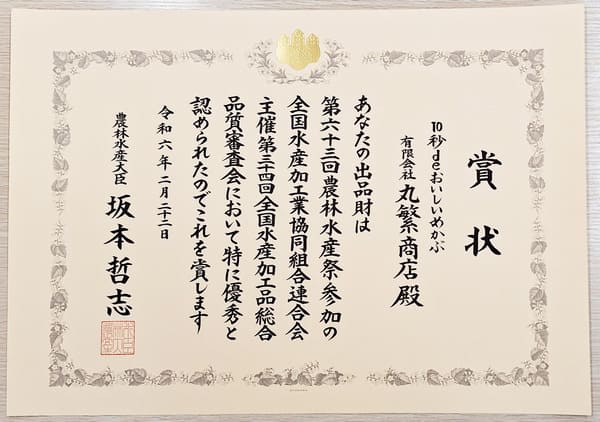 賞状
10秒deおいしいめかぶ
有限会社 丸繁商店 殿
あなたの出品財は
第六十三回農林水産祭参加の
全国水産加工業協同組合連合会
主催第三四回全国水産加工品総合
品質審査会において特に優秀と
認められたのでこれを賞します
令和六年二月二十二日
農林水産大臣 坂本哲志